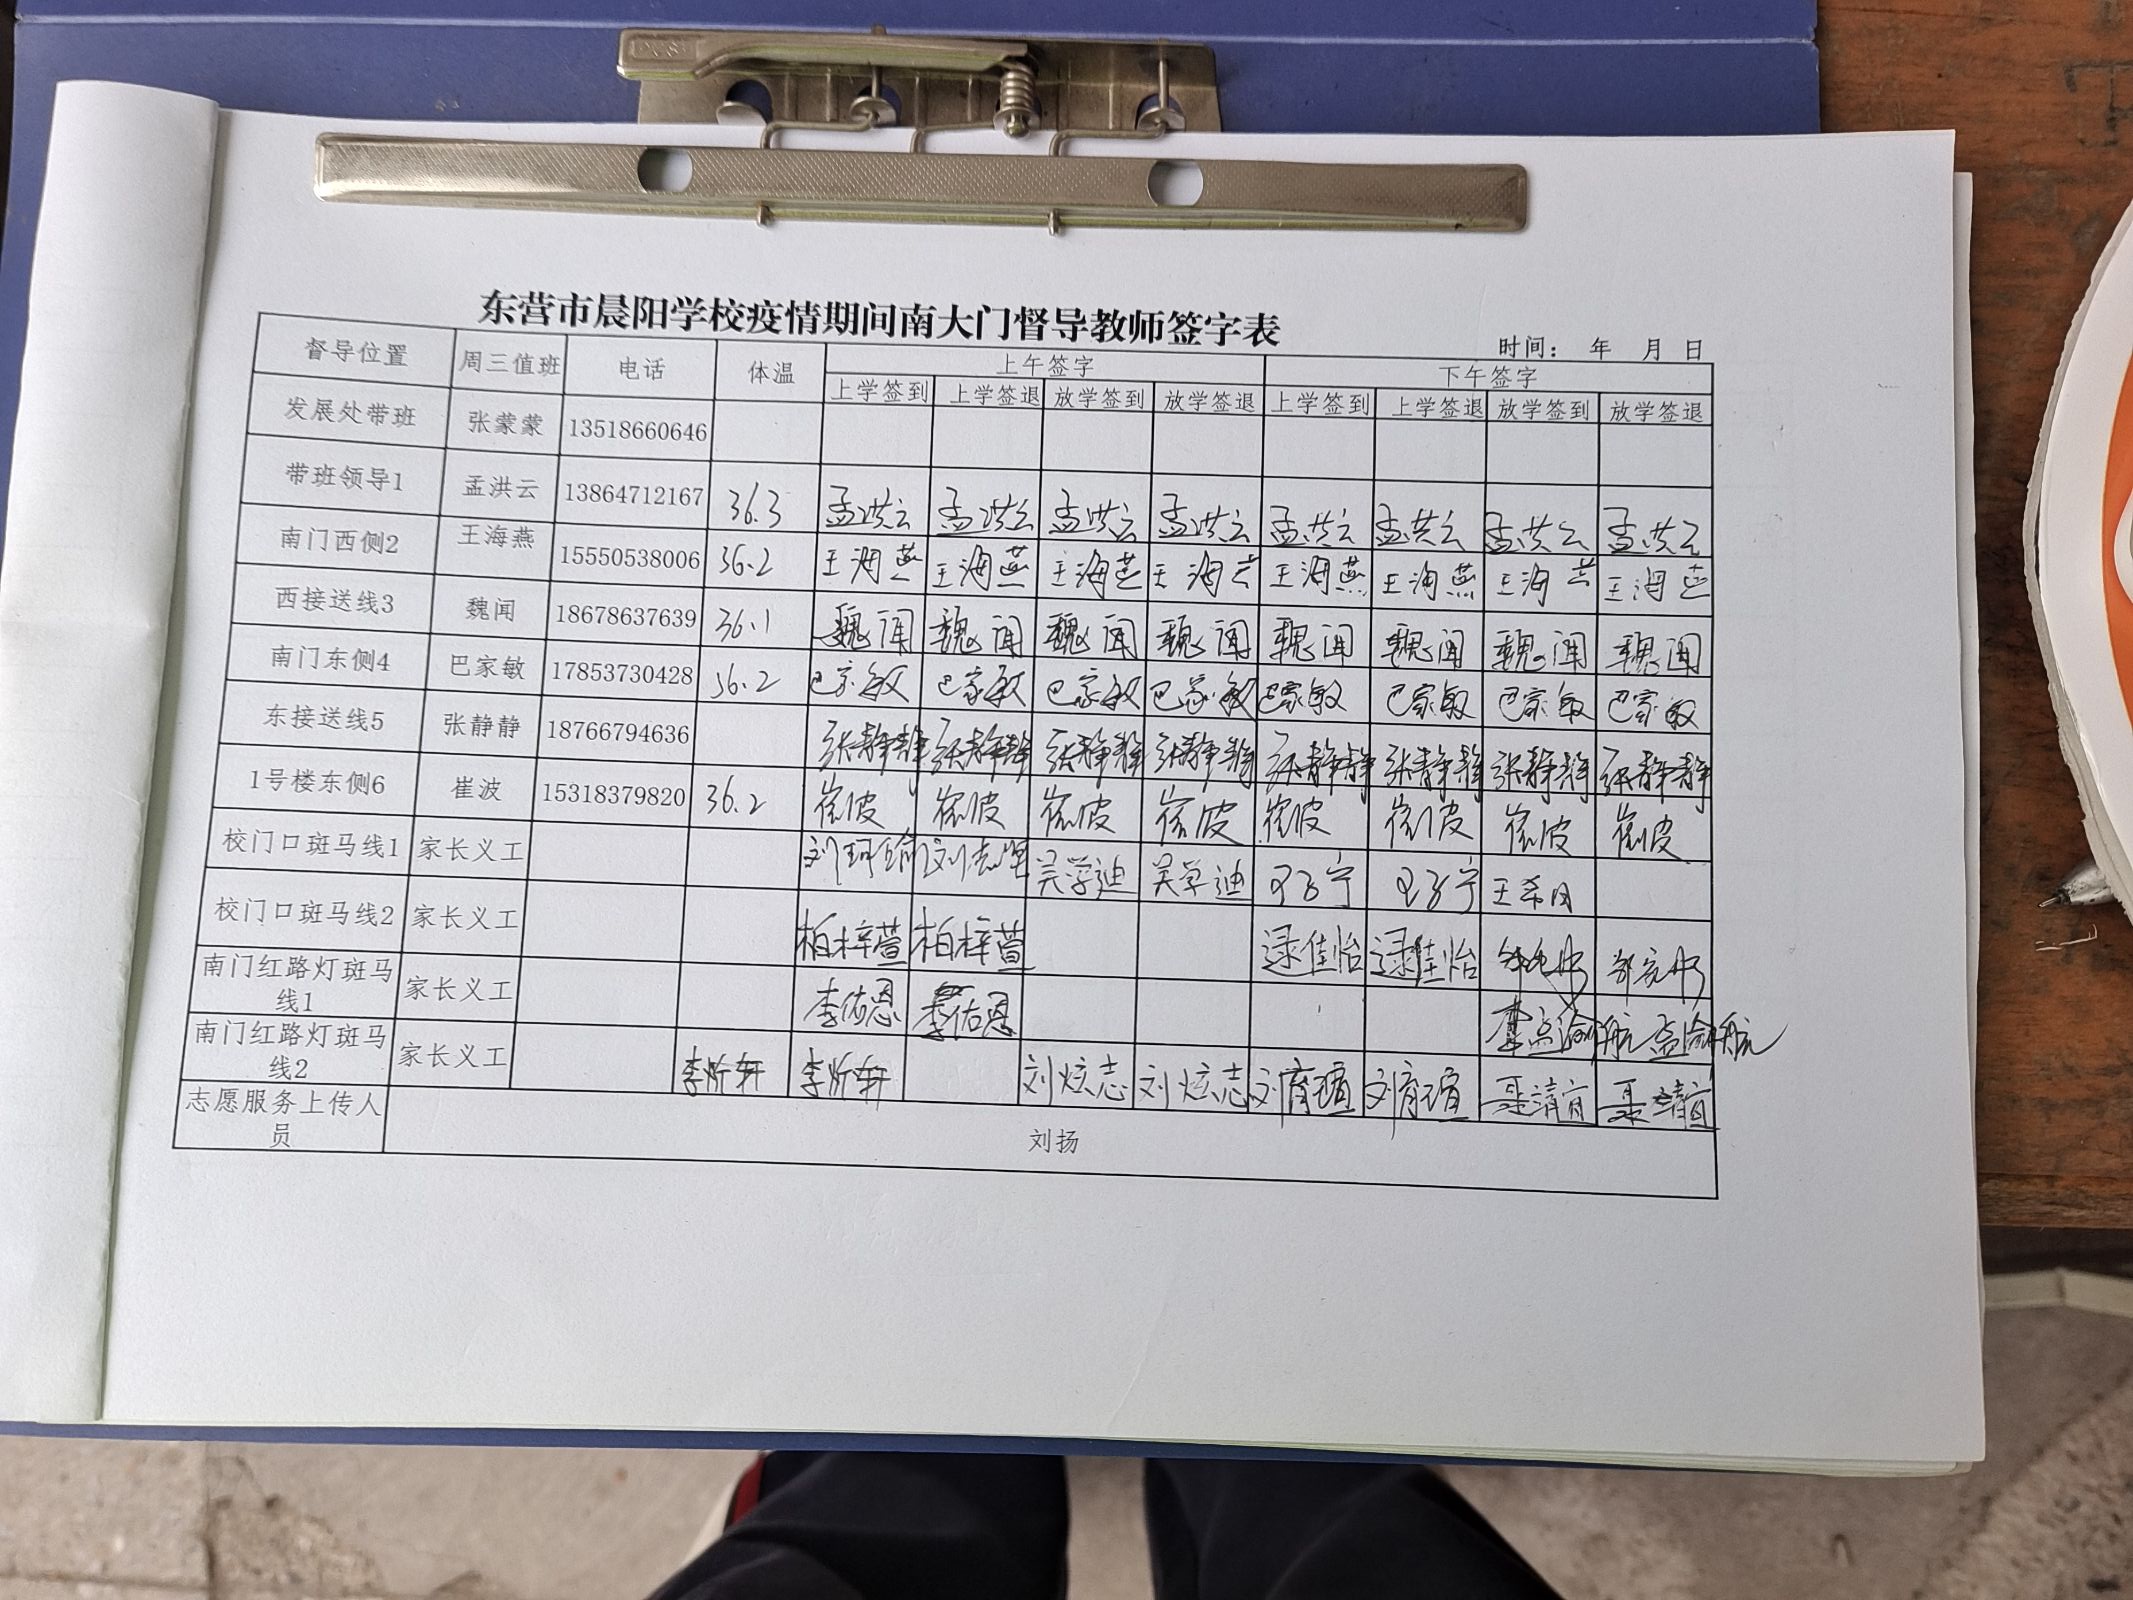 东营市晨阳学校疫情期间南大门督导教师签字表
时间： 年 月 日
督导位置 周三值班 电话 体温 上午签字 下午签字
上学签到 上学签退 放学签到 放学签退 上学签到 上学签退 放学签到 放学签退
发展处带班 张蒙蒙 13518660646
带班领导1 孟洪云 13864712167 36.3 孟洪云 孟洪云 孟洪云 孟洪云 孟洪云 孟洪云 孟洪云 孟洪云
南门西侧2 王海燕 15550538006 36.2 王海燕 王海燕 王海燕 王海燕 王海燕 王海燕 王海燕 王海燕
西接送线3 魏闻 18678637639 36.1 魏闻 魏闻 魏闻 魏闻 魏闻 魏闻 魏闻 魏闻
南门东侧4 巴家敏 17853730428 36.2 巴家敏 巴家敏 巴家敏 巴家敏 巴家敏 巴家敏 巴家敏 巴家敏
东接送线5 张静静 18766794636 张静静 张静静 张静静 张静静 张静静 张静静 张静静 张静静
1号楼东侧6 崔波 15318379820 36.2 崔波 崔波 崔波 崔波 崔波 崔波 崔波 崔波
校门口斑马线1 家长义工 吴学迪 吴学迪
校门口斑马线2 家长义工 柏梓萱 柏梓萱 逯佳怡 逯佳怡
南门红路灯斑马
线1
家长义工 李佑恩 李佑恩
南门红路灯斑马
线2
家长义工 李炘轩 李炘轩 刘炫志 刘炫志
志愿服务上传人
员
刘扬